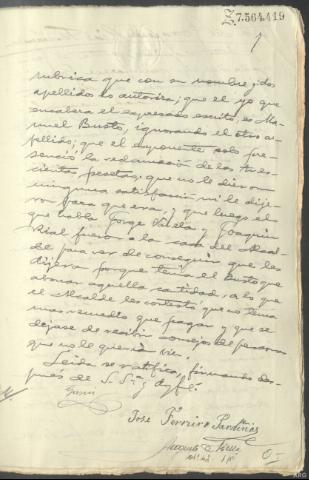 Z.7.564.419
1
rubrica que con su nombre y dos
apellidos lo autoriza; que el yo que
encabeza el expresado escrito, es Ma-
nuel Busto, ignorando el otro a-
pellido; que el exponente solo pre-
senció la reclamación de las tres-
cientas pesetas; que no le dieron
ninguna satisfacción ni le dije-
ron para que era; y que luego el
que habla Jorge Varela y Joaquin
Rial fueron a la casa del Alcal-
de para ver de conseguir que les
dijera porque tenia el Busto que
abonar aquella cantidad, a lo que
el Alcalde les contestó que no tenia
mas remedio que pagar y que se
dejase de recibir consejos de personas
que no le querian bien.
Leida se ratifica, firmando des-
pués de S. Sª y doy fé.
José Ferreiro Sardiñas